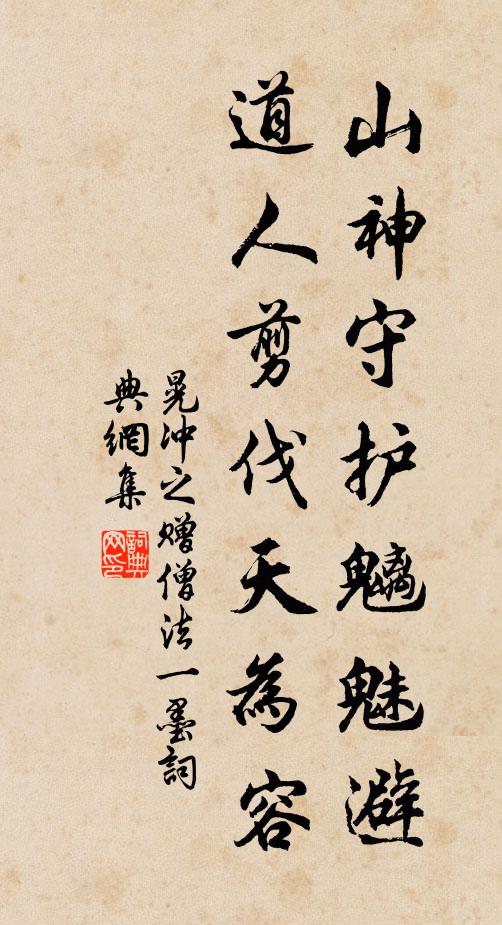 山神守护魑魅避
道人剪伐天為容
晁冲之赠僧法一墨詞
典網集
詞典
网印